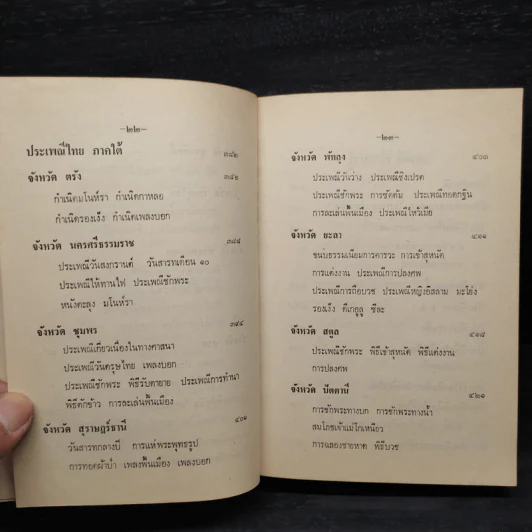 -๒๒-
ประเพณีไทย ภาคใต้ ๓๘๒
จังหวัด ตรัง ๓๘๒
กำเนิดมโนห์รา กำเนิดกาหลอ
กำเนิดรองเง็ง กำเนิดเพลงบอก
จังหวัด นครศรีธรรมราช ๓๘๘
ประเพณีวันสงกรานต์ วันสารทเดือน ๑๐
ประเพณีให้ทานไฟ ประเพณีชักพระ
หนังตะลุง มโนห์รา
จังหวัด ชุมพร ๓๙๔
ประเพณีเกี่ยวเนื่องในทางศาสนา
ประเพณีวันตรุษไทย เพลงบอก
ประเพณีชักพระ พิธีรับตายาย ประเพณีการทำนา
พิธีตักข้าว การละเล่นพื้นเมือง
จังหวัด สุราษฎร์ธานี ๔๐๑
วันสารทกลางปี การแห่พระพุทธรูป
การทอดผ้าป่า เพลงพื้นเมือง เพลงบอก
-๒๓-
จังหวัด พัทลุง ๔๐๓
ประเพณีวันว่าง ประเพณีชิงเปรต
ประเพณีชักพระ การซัดต้ม ประเพณีทอดกฐิน
การละเล่นพื้นเมือง ประเพณีไหว้เมีย
จังหวัด ยะลา ๔๑๑
ขนบธรรมเนียมการคารวะ การเข้าสุหนัต
การแต่งงาน ประเพณีการปลงศพ
ประเพณีการถือบวช ประเพณีหญิงอิสลาม มะโย่ง
รองเง็ง ดีเกฮูลู ซีละ
จังหวัด สตูล ๔๑๘
ประเพณีชักพระ พิธีเข้าสุหนัต พิธีแต่งงาน
การปลงศพ
จังหวัด ปัตตานี ๔๒๑
การชักพระทางบก การชักพระทางน้ำ
สมโภชเจ้าแม่โกเหนี่ยว
การฉลองชายหาด พิธีบวช